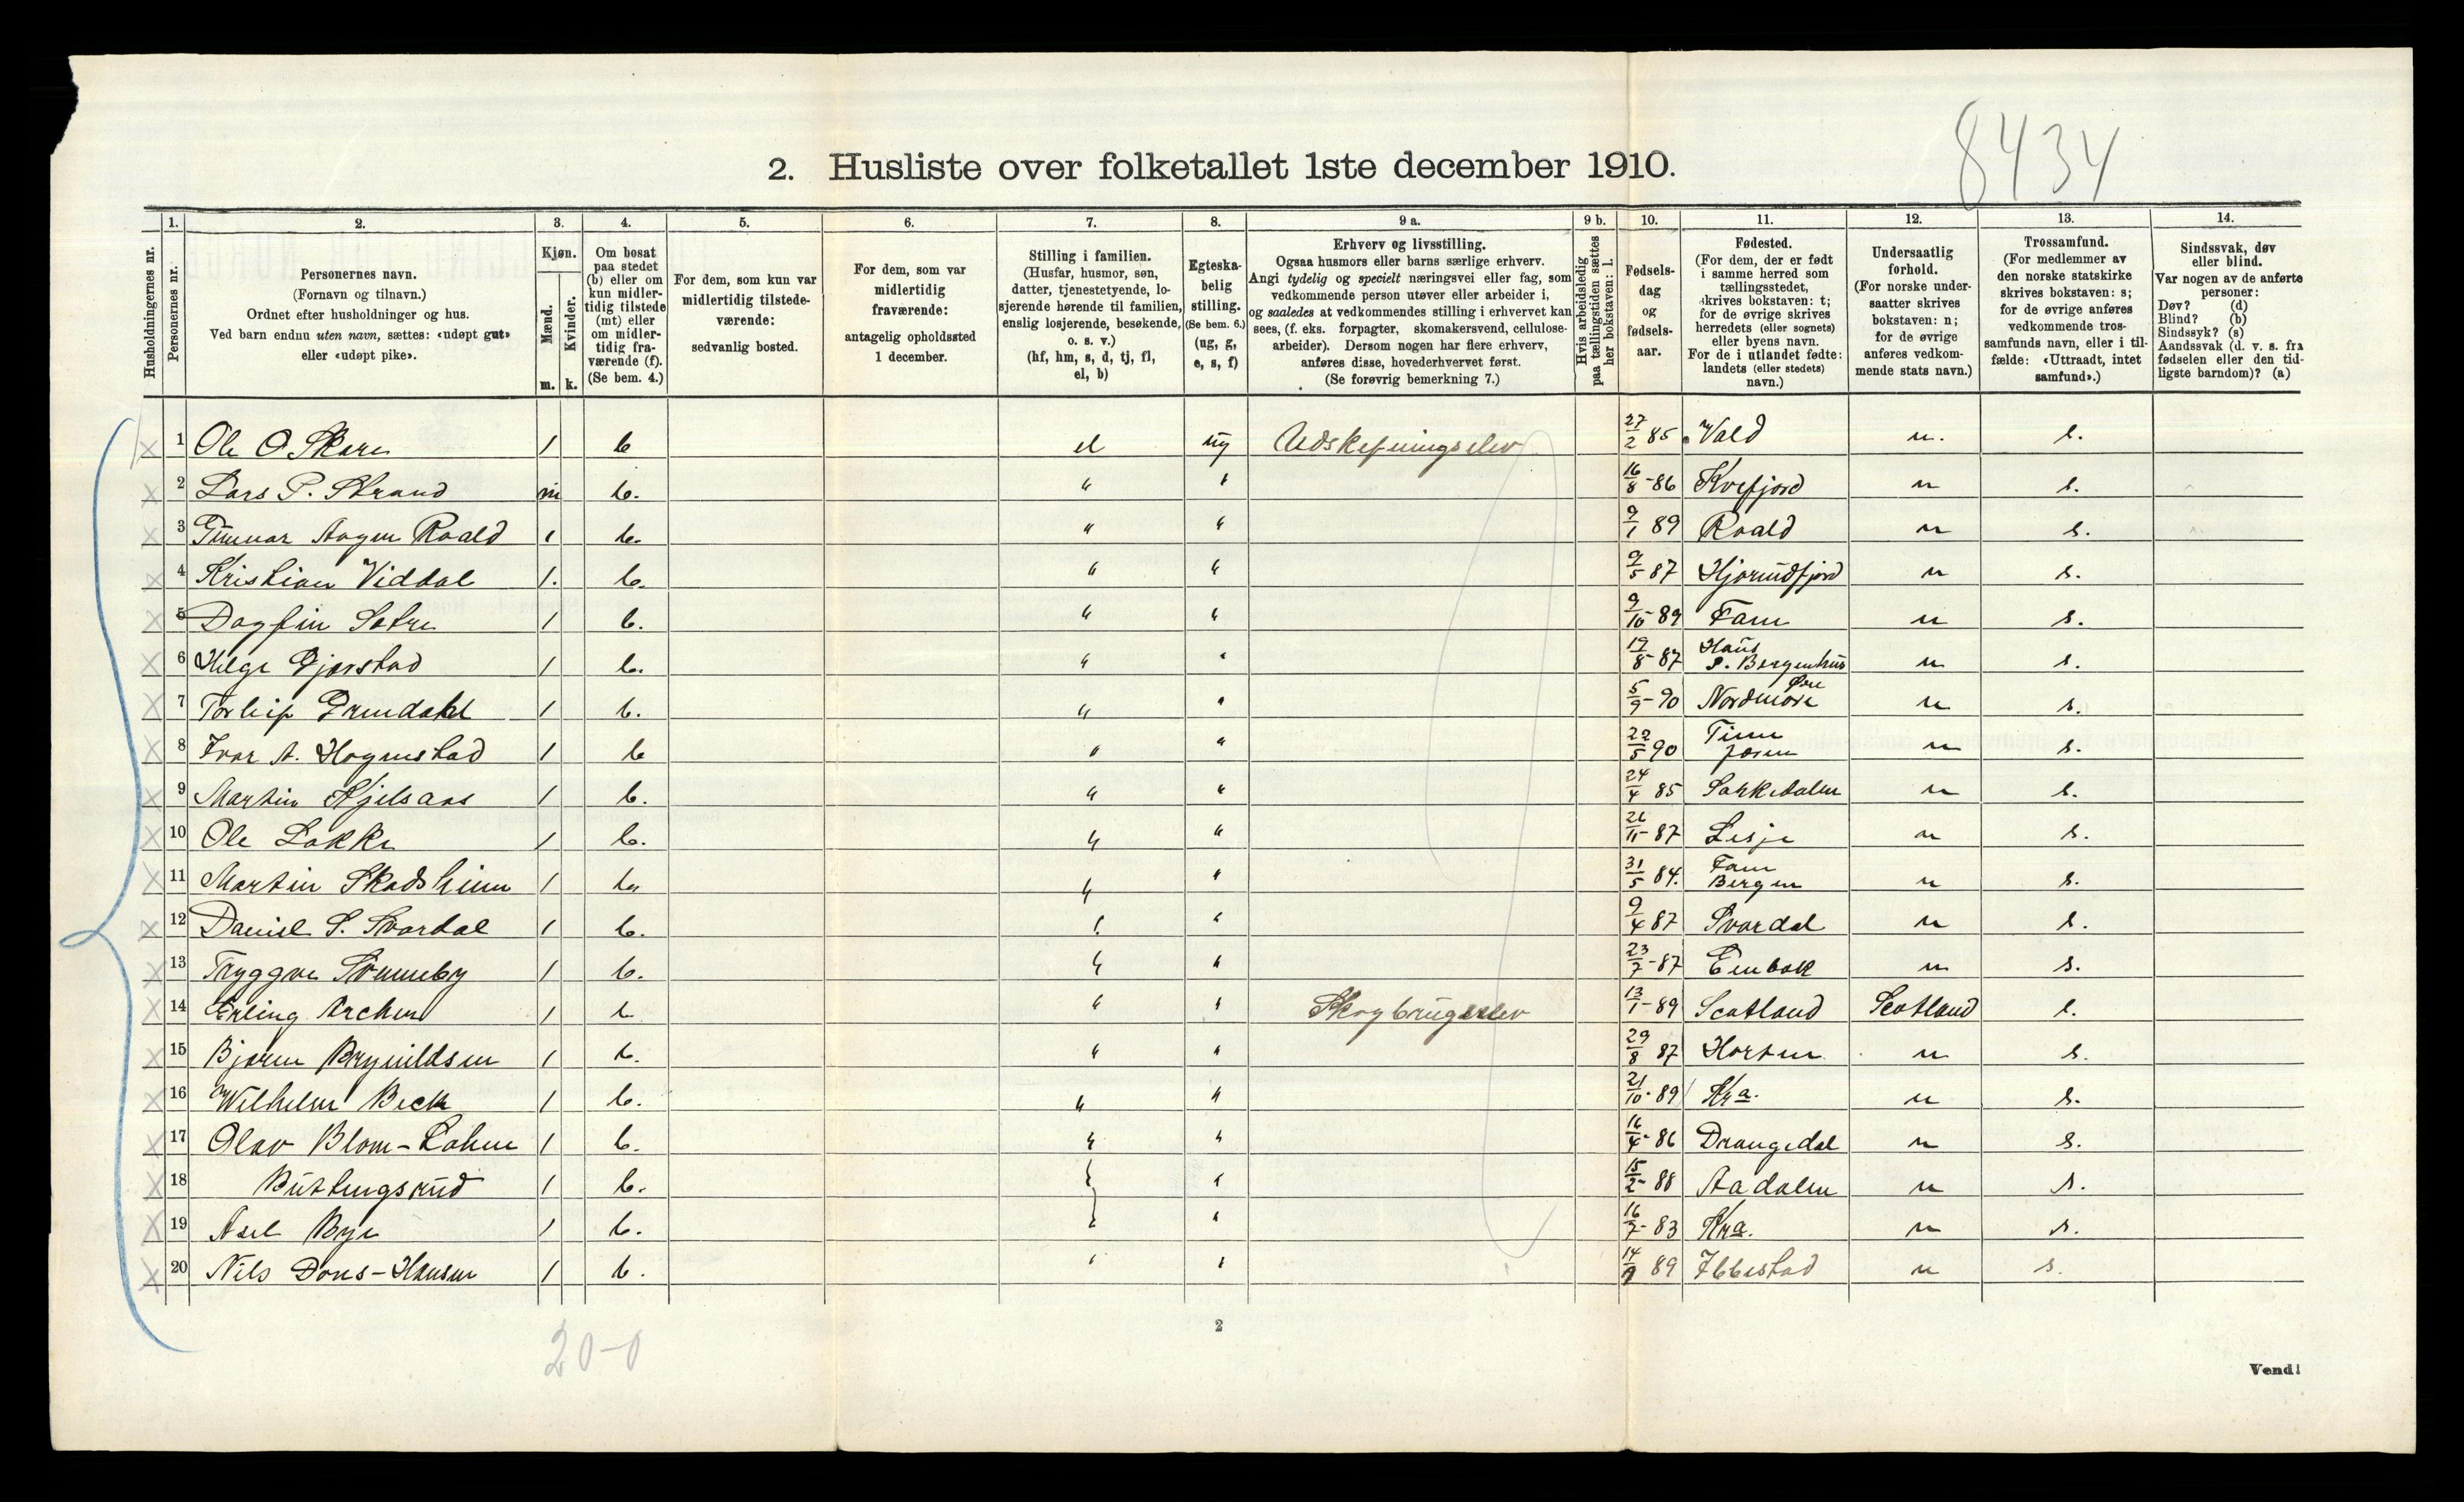 8434
2. Husliste over folketallet 1ste december 1910.
Husholdningernes nr.
1. Personernes nr.
2. Personernes navn.
(Fornavn og tilnavn.)
Ordnet efter husholdninger og hus.
Ved barn endnu uten navn, sættes: «udøpt gut»
eller «udøpt pike».
3. Kjøn.
Mænd. m.
Kvinder. k.
4. Om bosat
paa stedet
(b) eller om
kun midler-
tidig tilstede
(mt) eller
om midler-
tidig fra-
værende (f).
(Se bem. 4.)
5. For dem, som kun var
midlertidig tilstede-
værende:
sedvanlig bosted.
6. For dem, som var
midlertidig
fraværende:
antagelig opholdssted
1 december.
7. Stilling i familien.
(Husfar, husmor, søn,
datter, tjenestetyende, lo-
sjerende hørende til familien,
enslig losjerende, besøkende,
o. s. v.)
(hf, hm, s, d, tj, fl,
el, b)
8. Egteska-
belig
stilling.
(Se bem. 6.)
(ug, g,
e, s, f)
9 a. Erhverv og livsstilling.
Ogsaa husmors eller barns særlige erhverv.
Angi tydelig og specielt næringsvei eller fag, som
vedkommende person utøver eller arbeider i,
og saaledes at vedkommendes stilling i erhvervet kan
sees, (f. eks. forpagter, skomakersvend, cellulose-
arbeider). Dersom nogen har flere erhverv,
anføres disse, hovederhvervet først.
(Se forøvrig bemerkning 7.)
9 b. Hvis arbeidsledig
paa tællingstiden sættes
her bokstaven: l.
10. Fødsels-
dag
og
fødsels-
aar.
11. Fødested.
(For dem, der er født
i samme herred som
tællingsstedet,
skrives bokstaven: t;
for de øvrige skrives
herredets (eller sognets)
eller byens navn.
For de i utlandet fødte:
landets (eller stedets)
navn.)
12. Undersaatlig
forhold.
(For norske under-
saatter skrives
bokstaven: n;
for de øvrige
anføres vedkom-
mende stats navn.)
13. Trossamfund.
(For medlemmer av
den norske statskirke
skrives bokstaven: s;
for de øvrige anføres
vedkommende tros-
samfunds navn, eller i til-
fælde: «Uttraadt, intet
samfund».)
14. Sindssvak, døv
eller blind.
Var nogen av de anførte
personer:
Døv? (d)
Blind? (b)
Sindssyk? (s)
Aandssvak (d. v. s. fra
fødselen eller den tid-
ligste barndom)? (a)
1 Ole O Skare 1 b el ug Udskiftningselev 27/2 85 Vald n. s.
2 Lars P. Strand m b. " " 16/8-86 Kvefjord n s.
3 Gunnar Aagen Roald 1 b. " " 9/1 89 Roald n s.
4 Kristian Viddal 1. b. " " 9/5 87 Hjørundfjord n s.
5 Dagfin Sætre 1 b. " " 9/10-89 Fane n s.
6 Helge Gjerstad 1 b. " " 19/8-87 Haus S. Bergenhus n s.
7 Torleif Grendahl 1 b. " " 5/9-90 Nordmøre Øre n s.
8 Ivar A. Hogenstad 1 b " " 22/5 90 Time Jæren n s.
9 Martin Kjelsaas 1 b. " " 24/4 85 Sørkedalen n s.
10 Ole Løkke 1 b. " " 26/11-87 Lesje n s.
11 Martin Skodsheim 1 b. " " 31/5 84. Fane Bergen n s.
12 Daniel S. Svardal 1 b. " " 9/4 87 Svardal n s.
13 Tryggve Svenneby 1 b. " " 23/7-87 Enebak n s.
14 Erling Archer 1 b " " Skogbrugselev 13/1-89 Scotland Scotland s.
15 Bjørn Brynildsen 1 b. " " 29/8 87 Horten n s.
16 Wilhelm Beck 1 b. " " 21/10-89 Kra. n s.
17 Olav Blom-Lahn 1 b. " " 16/4-86 Drangedal n s.
18 Buttingsrud 1 b. " " 15/2-88 Aadalen n s.
19 Axel Bye 1 b. " " 16/7-83 Kra. n s.
20 Nils Dons-Hansen 1 b. " " 14/9 89 Ibbestad n s.
20-0
2
Vend!